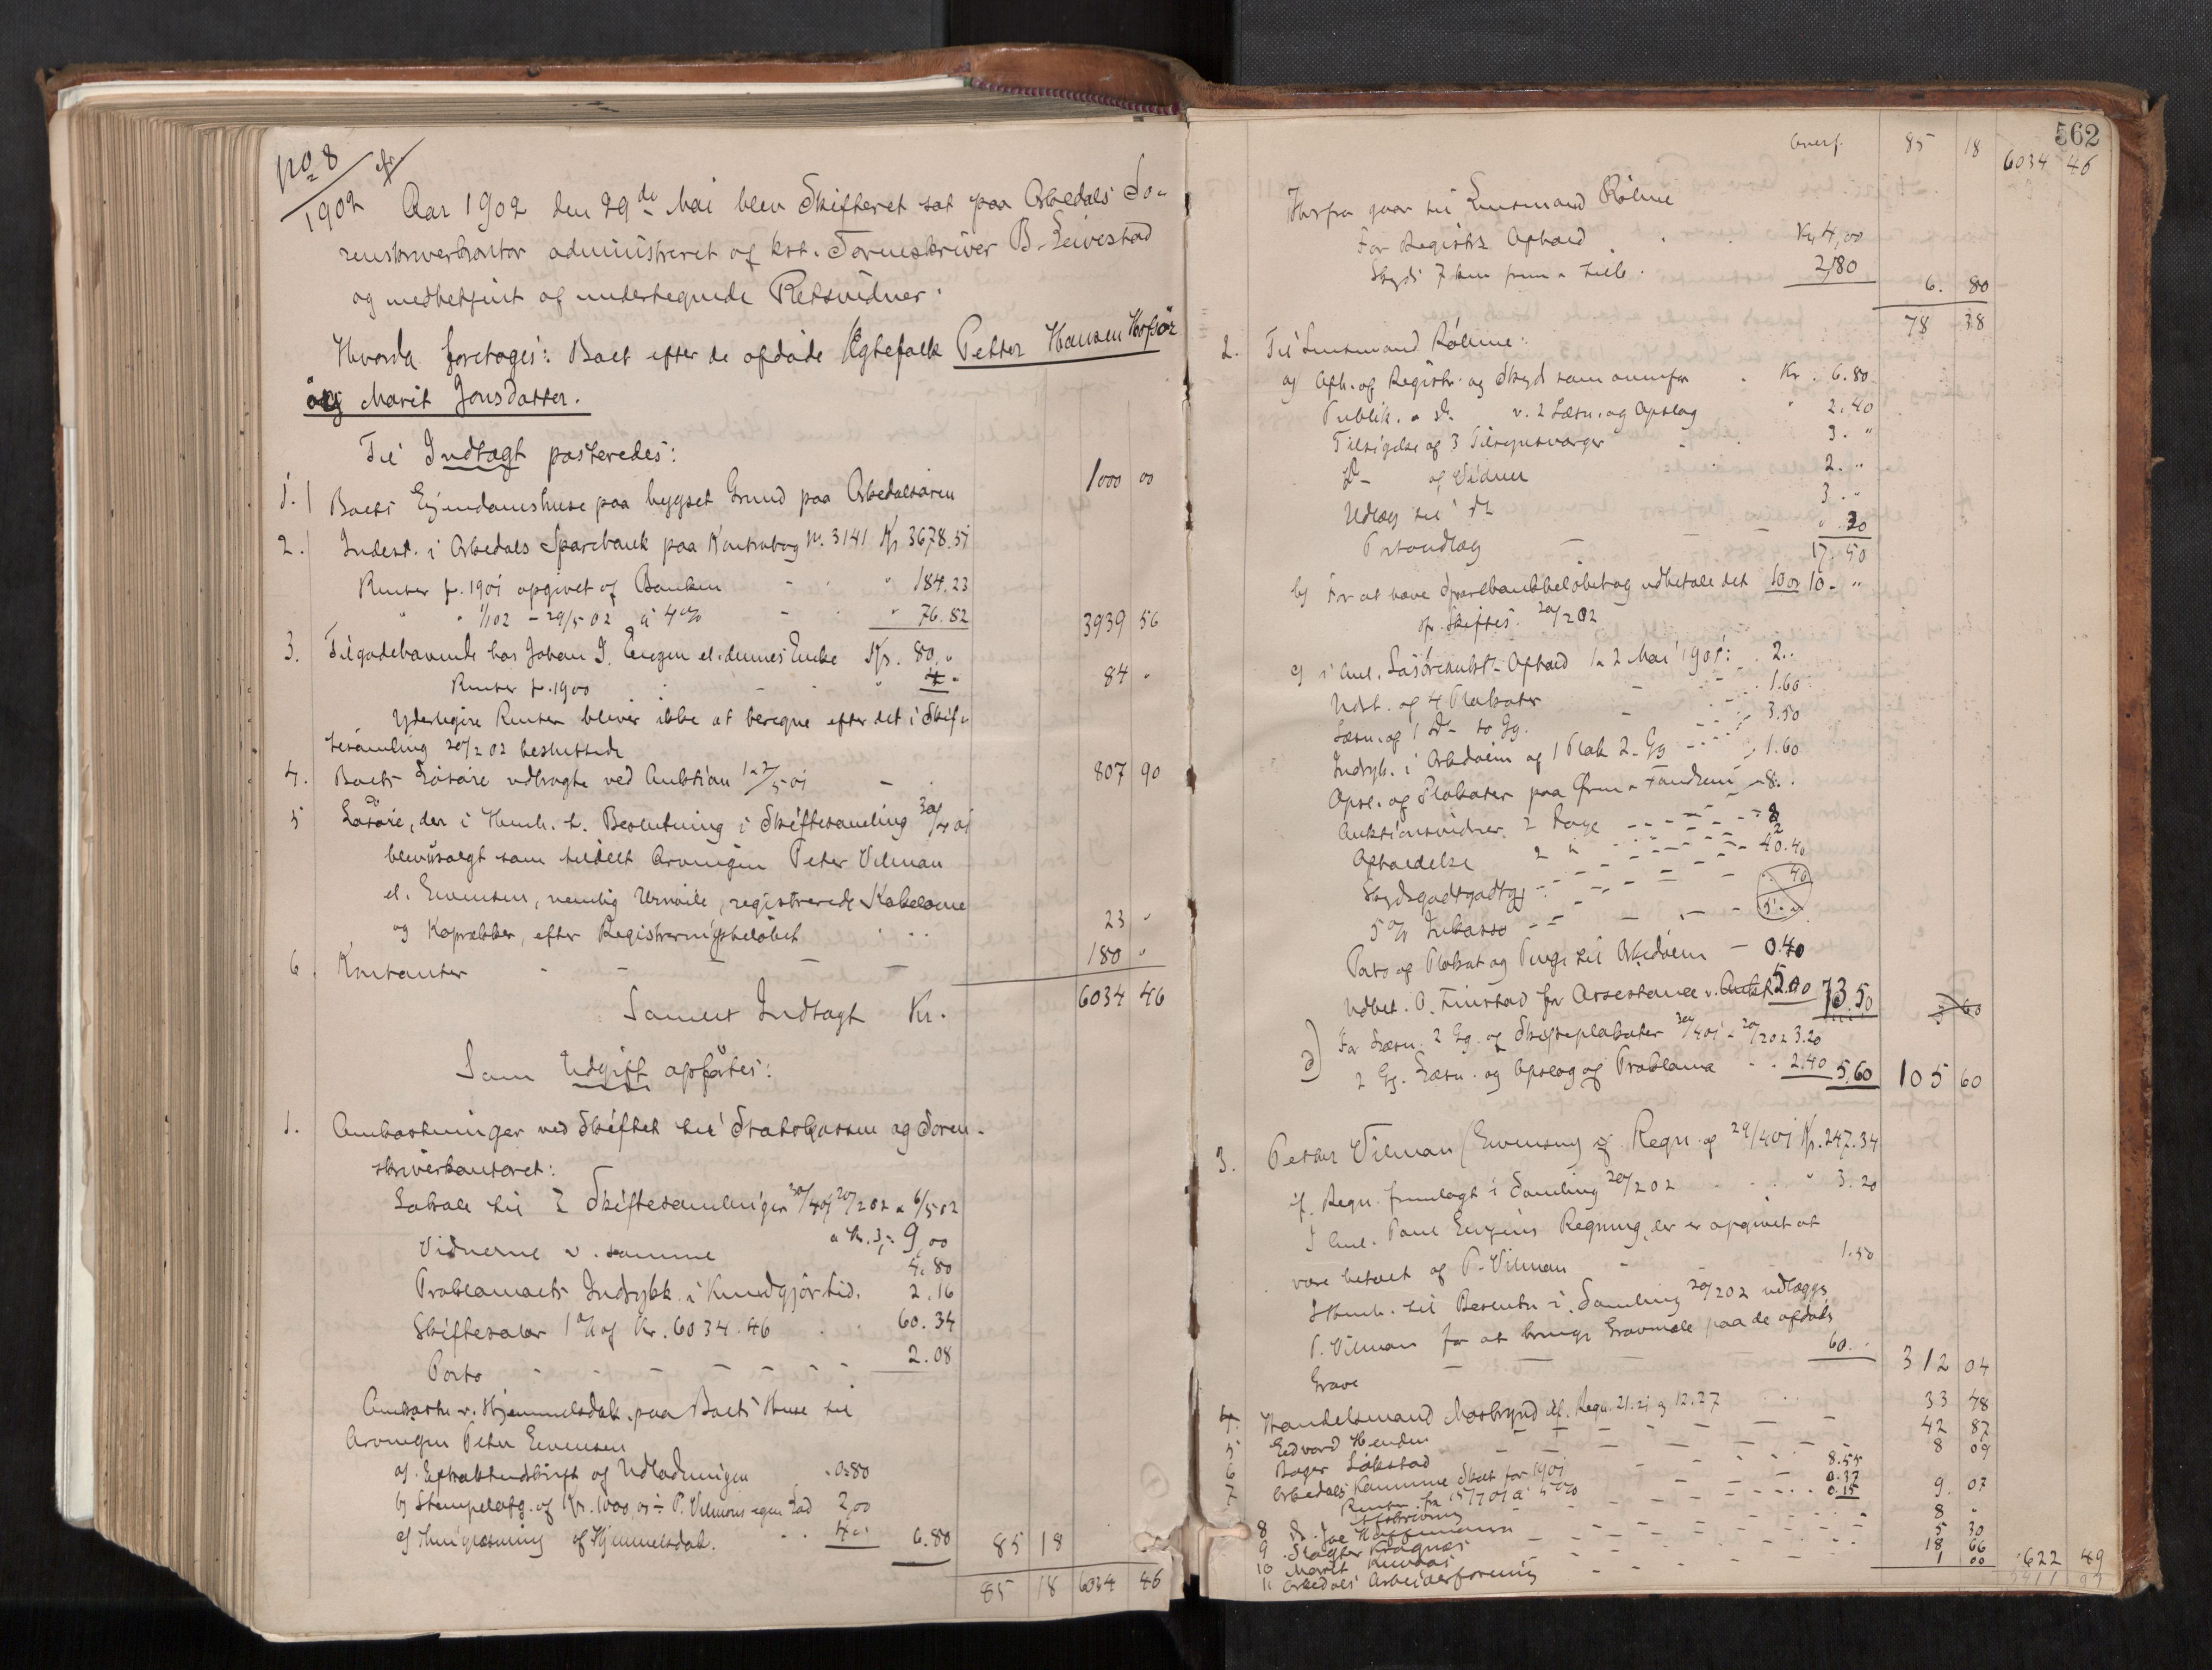 No 8
1902
Aar 1902 den 29de Mai blev Skifteret sat paa Orkedals So-
renskriverkontor administreret af kst. Sorenskriver B. Leivestad
og medbetjent af undertegnede Retsvidner.
Hvorda foretoges: Boet efter de afdøde Ægtefolk Petter Hansen Hofsør
og Marit Jonsdatter.
Til Indtægt posteredes:
1. Boets Ejendomshuse paa bygset Grund paa Orkedalsøren 1000 00
2. Indest. i Orkedals Sparebank paa Kontrabog N. 3141 Kr 3678.51
Renter f. 1901 opgivet af Banken - " 184.23
" " 1/1 02 - 29/5 02 à 4% - " 76.82 3939 56
3. Tilgodehavende hos Johan J. Engen el. dennes Enke Kr. 80."
Renter f. 1900 - " 4." 84 "
Yderligere Renter bliver ikke at beregne efter det i Skif-
tesamling 20/2 02 besluttede
4. Boets Løsøre udbragte ved Auktion 1 & 2/5 01 - 807 90
5 Løsøre, der i Henh. t. Beslutning i Skiftesamling 30/4 01
blev usolgt som tildelt Arvingen Peter Vilman
el. Evensen, nemlig Urmoile, registrerede Kakelovne
og Koprækker, efter Registreringsbeløbet 23 "
6. Kontanter - - - - 180 "
Samlet Indtægt Kr. 6034 46
Som Udgift opførtes:
1. Omkostninger ved Skiftet til Statskassen og Soren-
skriverkontoret:
Lokale til 3 Skiftesamlinger 30/4 01 20/2 02 & 6/5 02
a Kr. 3,- 9,00
Vidnerne v. samme 4.80
Proklamaets Indrykk. i Kundgjør.tid. 2.16
Skifteafgr 1% af Kr. 6034.46 60.34
Porto - - - - 2.08
Omkostn. v. Hjemmelsdok. paa Boets Huse til
Arvingen Peter Evensen
a) Extraktudskrift af Udlodningen 0.80
b) Stempelafg. af Kr. 1000,00 ÷ P. Vilmans egen Lod 2,00
c) Thinglæsning af Hjemmelsdok. 4.00 6.80 85 18
85 18 6034 46
562
Overf. 85 18 6034 46
Herfra gaar til Lensmand Rølme
For Registr. Ophold Kr 4,00
Skyds 7 km frem & tilb. 2,80 6. 80
78 38
2. Til Lensmand Rølme:
a) Oph. og Registr. og Skyds som ovenfor Kr. 6.80
Publik. a do v. 2 Læsn. og Opslag " 2.40
Tilsigelse af 3 Tilsynsværger 3."
Do - af Vidner 2."
Udlæg til do 3."
Portoudlæg - - ".30
17.50
b) For at hæve Sparebankbeløbet og udbetale det 10 or 10."
efr. Skiftes. 20/2 02
c) i Anl. Løsøreaukt. Ophold 1 & 2 Mai 1901: 2..
Udst. af 4 Plakater - 1.60
Læsn. af 1 Do - 10 Gg. - 3.50
Indryk. i Orkedølen af 1 Plak 2 Gg - 1.60
Opsl. af Plakater paa Ørn & Fandrem - 8.
Auktionsvidner 2 Dage - - - 8
Opholdelse 2 " - - -
Skydsgodtgj - - - 40.40
5% Inkasso - -
Porto af Plakat og Penge til Orkedølen - 0.40
Udbet. O. Finstad for Assistance v. Aukt. 5.00 73.50
d) For Læsn. 2 Gg. af Skifteplakater 30/4 01 & 20/2 02 3.20
2 Gg. Læsn. og Opslag af Proklama - 2.40 5.60 105 60
3. Petter Vilman (Evensen) ef. Regn. af 29/4 01 Kr. 247.34
if. Regn. fremlagt i Samling 20/2 02 " 3.20
I Anl. Paul Engens Regning, der er opgivet at
være betalt af P. Vilman - 1.50
I Henh. til Beslutn. i Samling 20/2 02 udlægges
P. Vilman for at bringe Gravmæle paa de afdødes
Grav - - - 60.- 312 04
4. Handelsmand Mosbrynd ef. Regn. 21.21 og 12.27 33 48
5 Edvard Henden - - - 42 87
6 Bager Løkstad - - - 8 09
7 Orkedals Kommune Skat for 1901 8.55
Renter fra 15/7 01 a 5% 0.37
Afskrivning 0.15 9. 07
8 D. Joe Hoffmann - - - 8 "
9 Slagter Kragnæs - - - 5 30
10 Marit Kuvaas - - - 18 66
11 Orkedals Arbeiderforening - - 1 00 622 49
5411 97